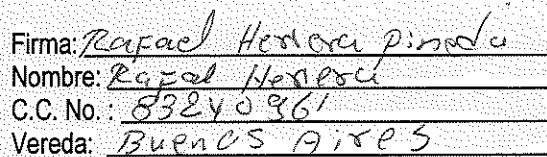 Firma: Rafael Herrera Pineda
Nombre: Rafael Herrera
C.C. No. : 83240961
Vereda: Buenos Aires